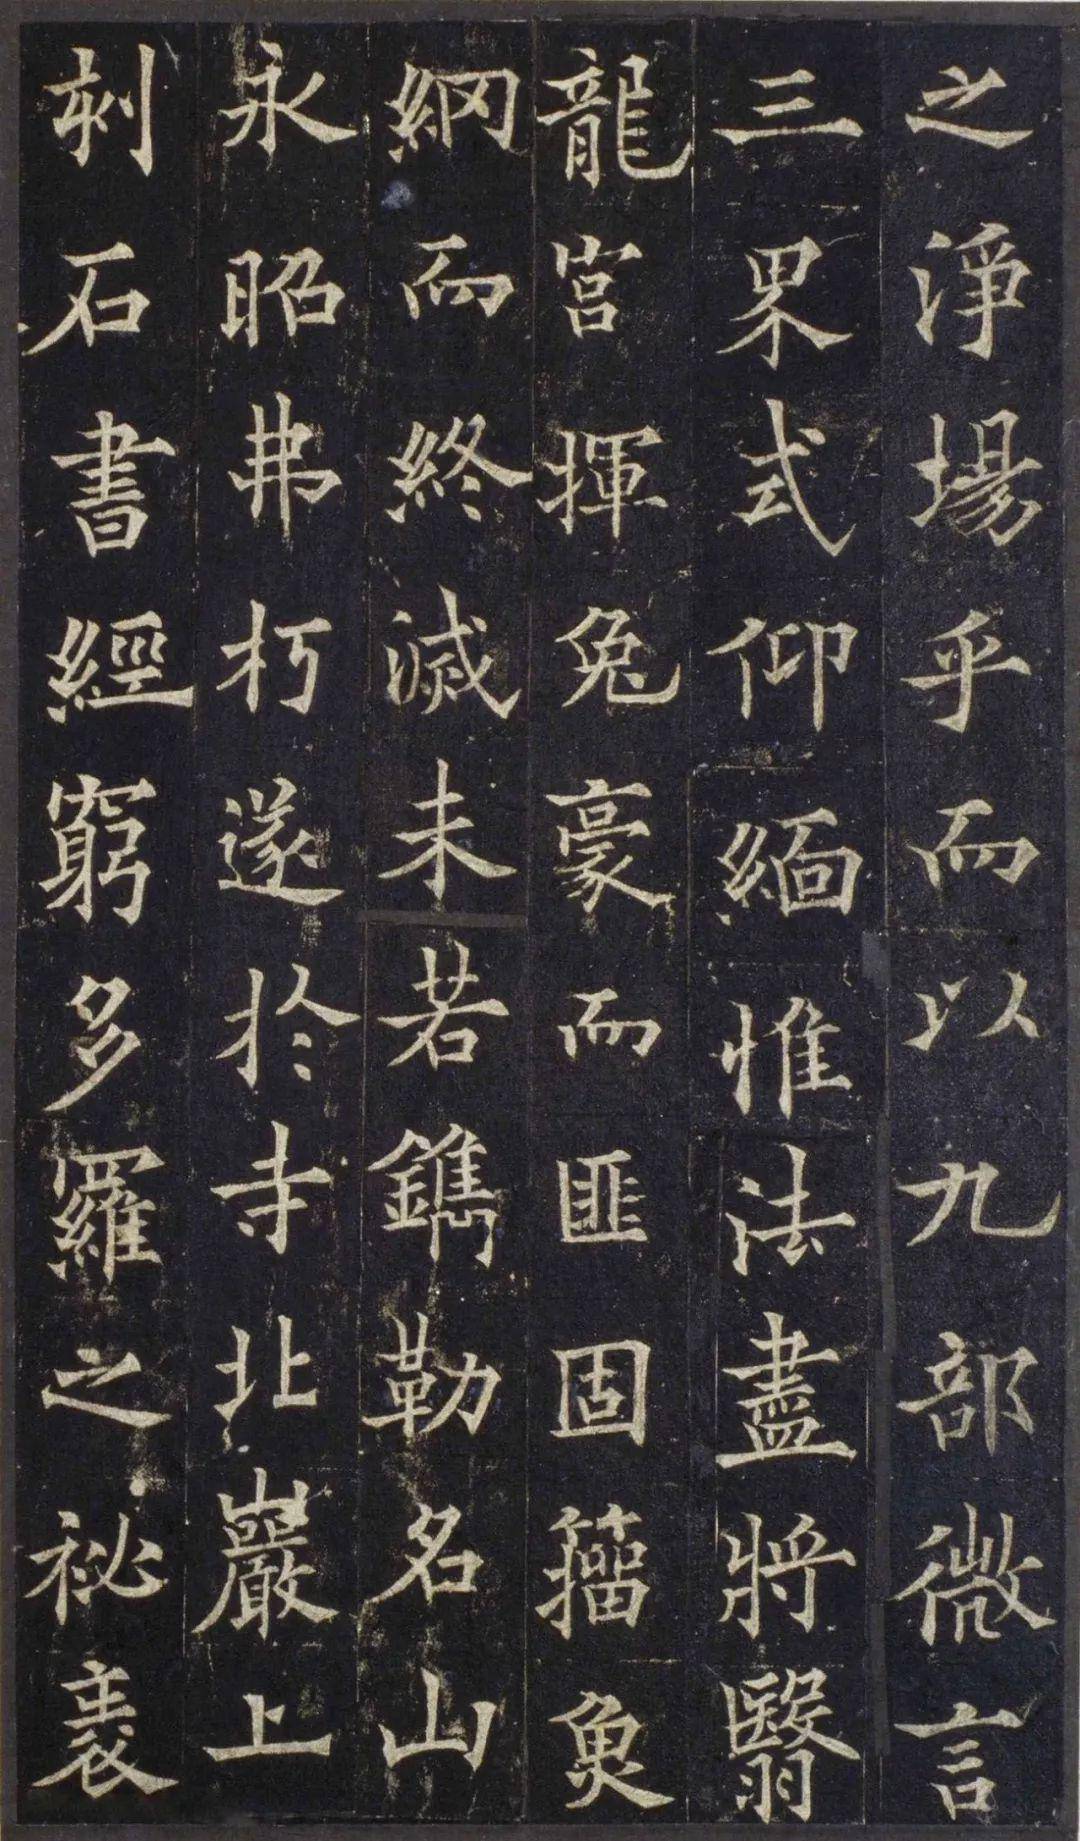 之淨場乎而以九部微言
三界式仰緬惟法盡將翳
龍宮揮兔豪而匪固籀魚
網而終滅未若鐫勒名山
永昭弗朽遂於寺北巖上
刾石書經窮多羅之祕袠